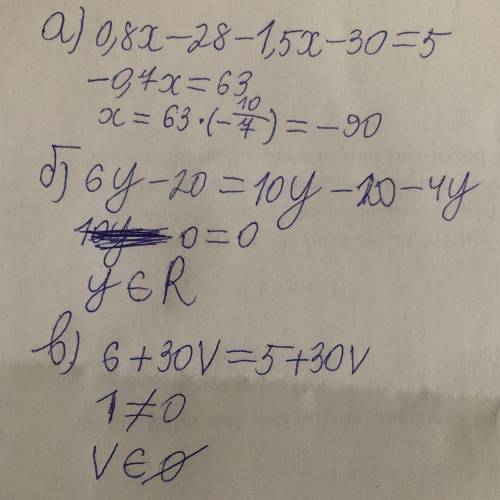 а) 0,8x-28-1,5x-30=5
-0,7x=63
x=63·(-10/7)=-90
б) 6y-20=10y-20-4y
0=0
y∈R
в) 6+30V=5+30V
1≠0
V∈∅